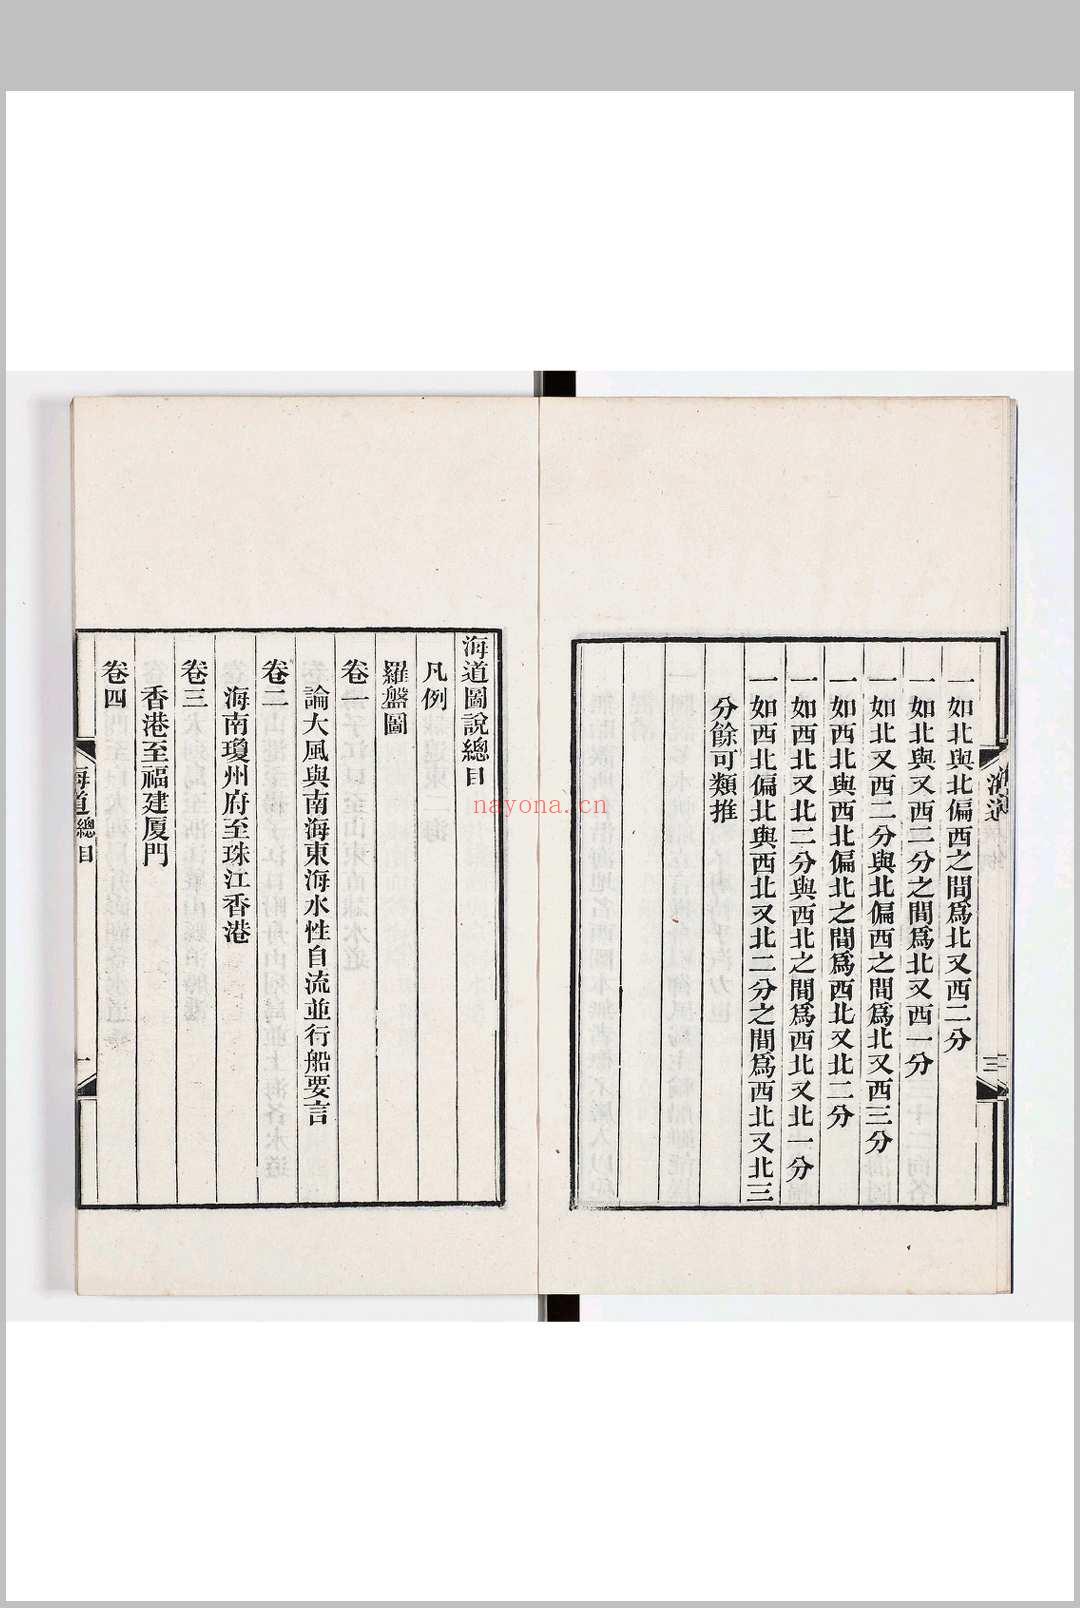 一如北與北偏西之間爲北又西二分
一如北與又西二分之間爲北又西一分
一如北又西二分與北偏西之間爲北又西三分
一如西北與西北偏北之間爲西北又北二分
一如西北又北二分與西北之間爲西北又北一分
一如西北偏北與西北又北二分之間爲西北又北三
分餘可類推
三
海道圖說總目
凡例
羅盤圖
卷一
論大風與南海東海水性自流並行船要言
卷二
海南瓊州府至珠江香港
卷三
香港至福建厦門
卷四
海道總目
一
nayona.cn